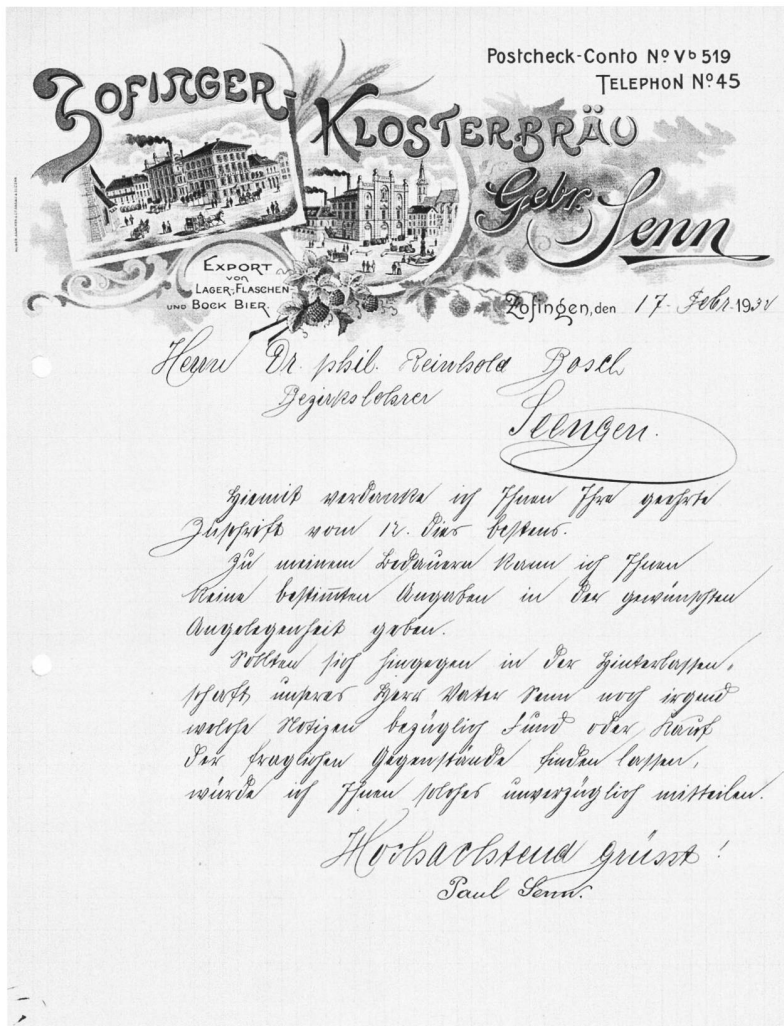 Postcheck-Conto Nº Vb 519
TELEPHON Nº 45
ZOFINGER-
KLOSTERBRÄU
Gebr. Senn
EXPORT
VON
LAGER-, FLASCHEN
UND BOCK BIER.
Zofingen, den 17. Febr. 1932
Herrn Dr. phil. Reinhold Bosch
Bezirkslehrer
Seengen.
Hiemit verdanke ich Ihnen Ihre geehrte
Zuschrift vom 12. dies bestens.
Zu meinem Bedauern kann ich Ihnen
keine bestimmten Angaben in der gewünschten
Angelegenheit geben.
Sollten sich hingegen in der Hinterlassen-
schaft unseres Herr Vater Senn noch irgend
welche Notizen bezüglich Fund oder Kauf
der fraglichen Gegenstände finden lassen,
würde ich Ihnen solches unverzüglich mitteilen.
Hochachtend grüsst!
Paul Senn.